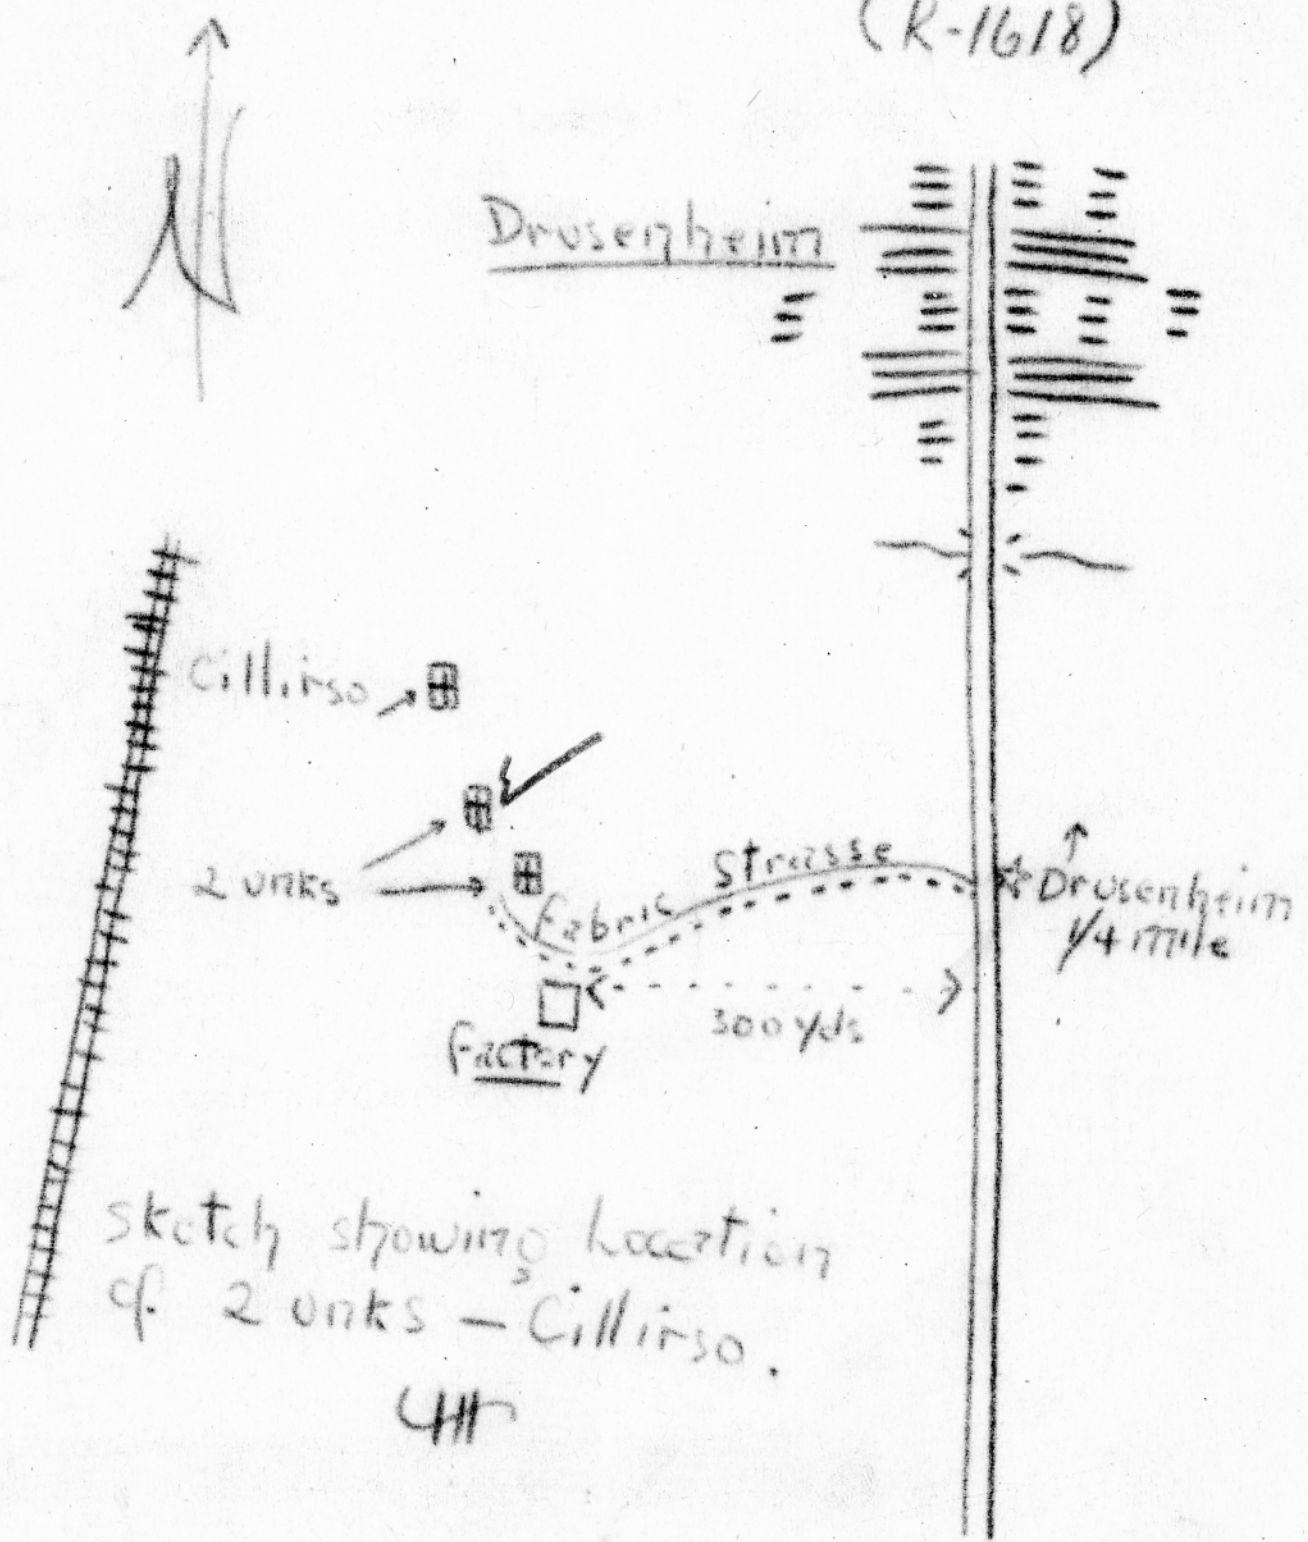 (R-1618)
N
Drusenheim
Cillirso
2 unks
Fabric Strasse
Drusenheim
1/4 mile
300 yds
Factory
Sketch showing Location
of 2 unks – Cillirso.